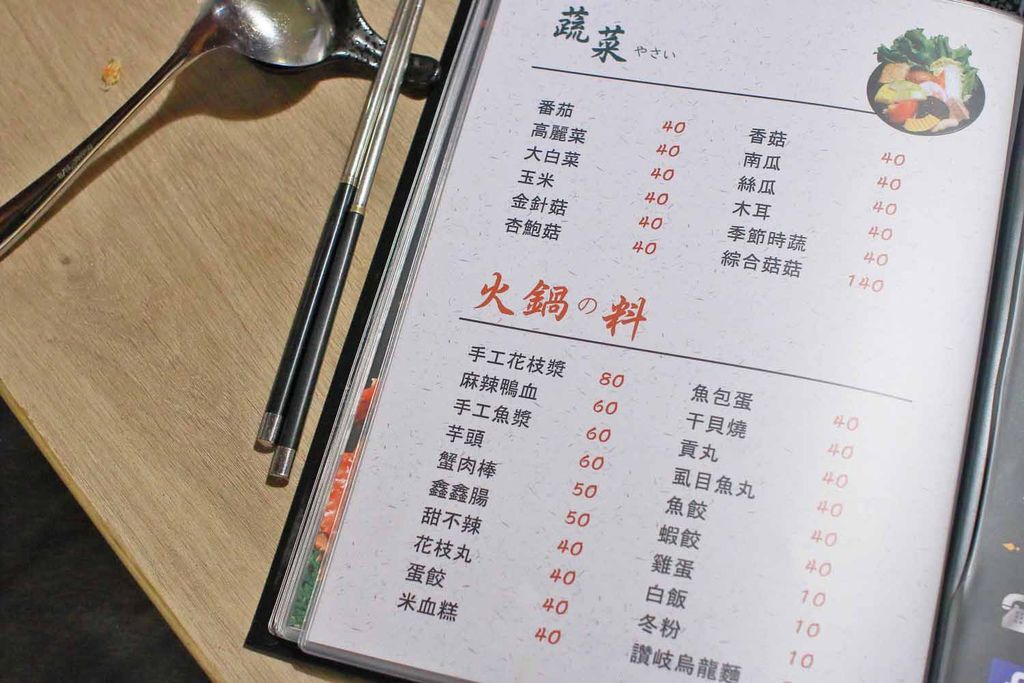 蔬菜 やさい
番茄 40
高麗菜 40
大白菜 40
玉米 40
金針菇 40
杏鮑菇 40
香菇 40
南瓜 40
絲瓜 40
木耳 40
季節時蔬 40
綜合菇菇 140
火鍋の料
手工花枝漿 80
麻辣鴨血 60
手工魚漿 60
芋頭 60
蟹肉棒 50
鑫鑫腸 50
甜不辣 40
花枝丸 40
蛋餃 40
米血糕 40
魚包蛋 40
干貝燒 40
貢丸 40
虱目魚丸 40
魚餃 40
蝦餃 40
雞蛋 10
白飯 10
冬粉 10
讚岐烏龍麵